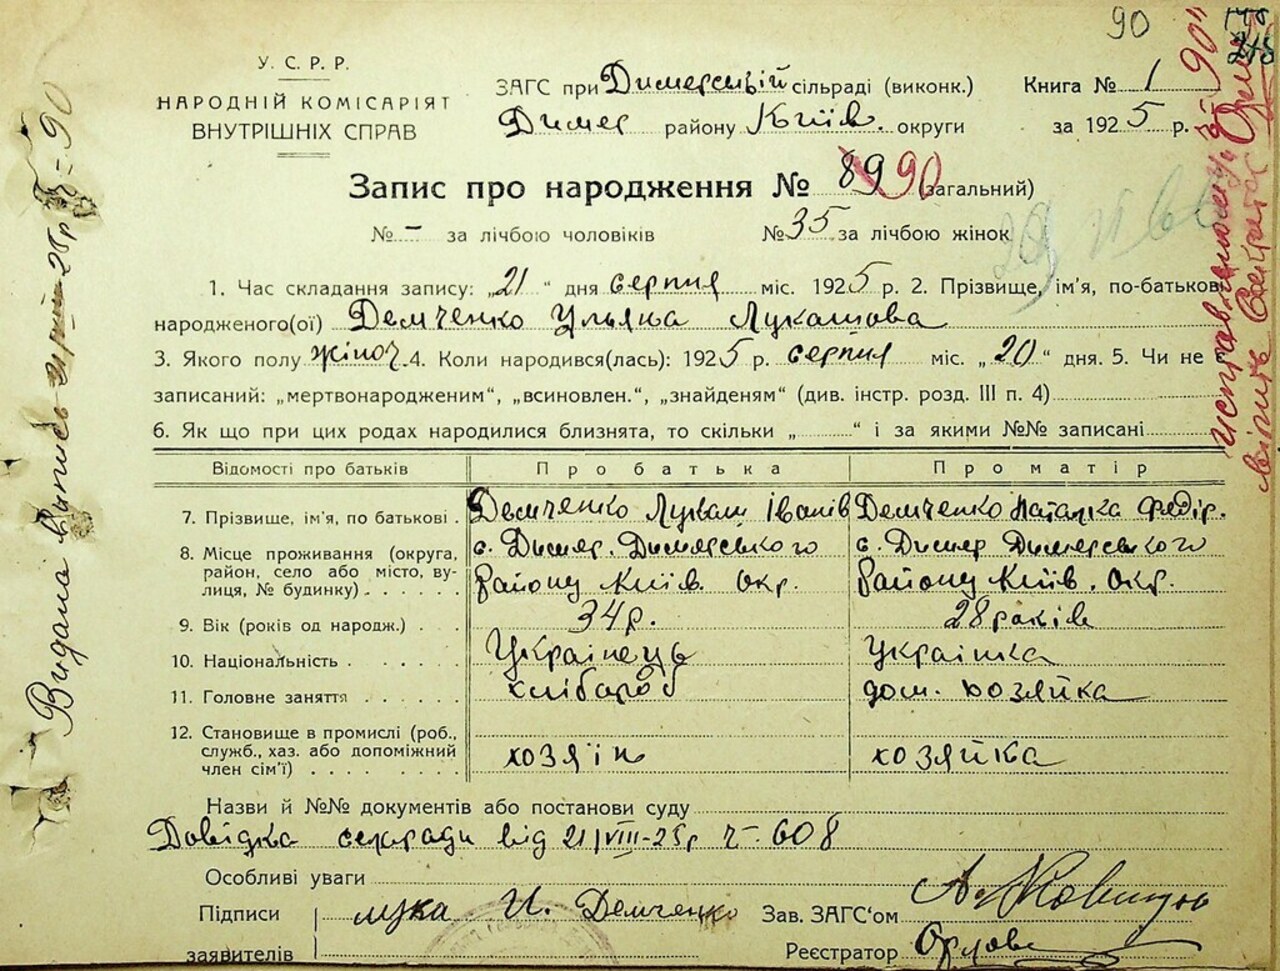 90
У. С. Р. Р.
НАРОДНІЙ КОМІСАРІЯТ
ВНУТРІШНІХ СПРАВ
ЗАГС при Димерській сільраді (виконк.)
Димер району Київ. округи
Книга № 1
за 1925 р.
Запис про народження № 89 90 (загальний)
№ – за лічбою чоловіків № 35 за лічбою жінок
1. Час складання запису: „21“ дня серпня міс. 1925 р. 2. Прізвище, ім'я, по-батькові
народженого(ої) Демченко Уляна Лукашова
3. Якого полу жіноч. 4. Коли народився(лась): 1925 р. серпня міс. „20“ дня. 5. Чи не
записаний: „мертвонародженим“, „всиновлен.“, „знайденям“ (див. інстр. розд. III п. 4)
6. Як що при цих родах народилися близнята, то скільки „ “ і за якими №№ записані
Відомості про батьків Про батька Про матір
7. Прізвище, ім'я, по батькові . Демченко Лукаш Іванів Демченко Наталка Федір.
8. Місце проживання (округа, с. Димер. Димерського с. Димер Димерського
район, село або місто, ву-
лиця, № будинку) району Київ. окр. району Київ. окр.
9. Вік (років од народж.) . . 34 р. 28 років
10. Національність Українець Українка
11. Головне заняття хлібороб дом. хозяйка
12. Становище в промислі (роб.,
служб., хаз. або допоміжний
член сім'ї) хозяїн хозяйка
Назви й №№ документів або постанови суду
Довідка сельради від 21/VIII-25р ч. 608
Особливі уваги
Підписи
заявителів
лука И. Демченко
Зав. ЗАГС'ом
Реєстратор Орлова
Видана выпись
90